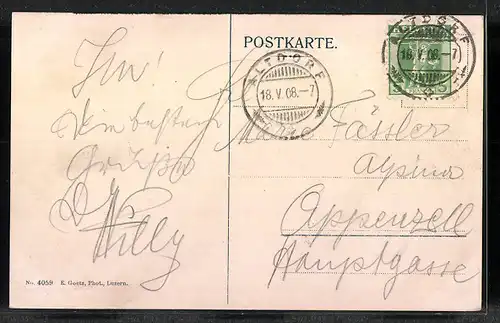 POSTKARTE.
ALTDORF
18.V.08.-7
ALTDORF
18.V.08.-7
5
Die besten
Grüsse
Willy
Marie Fässler
Alpina
Appenzell
Hauptgasse
No. 4059 E. Goetz, Phot., Luzern.